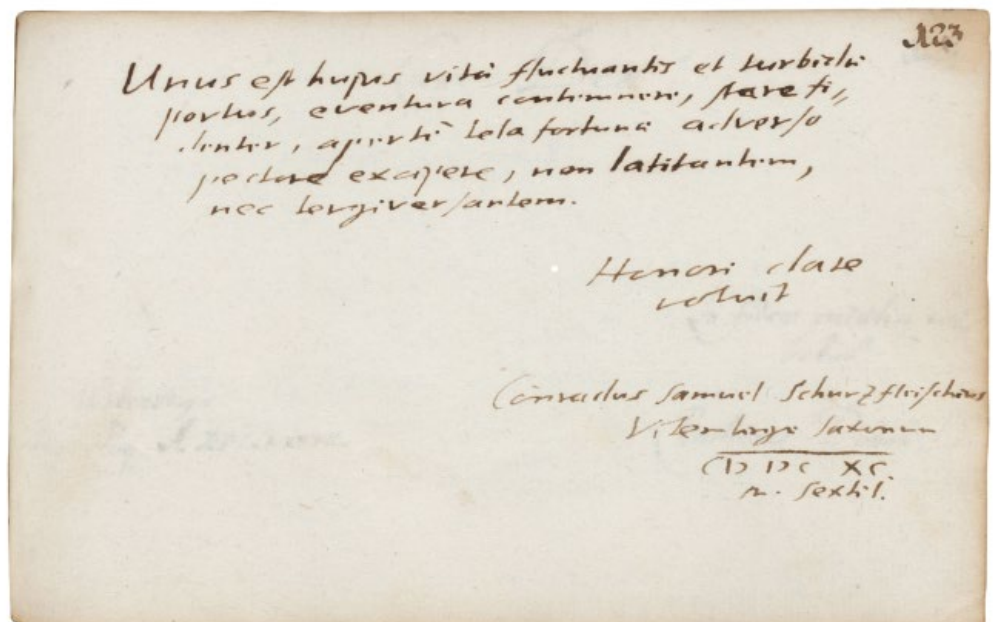 123
Unus est hujus vitæ fluctuantis et turbidæ
portus, eventura contemnere, stare fi„
denter, aperte tela fortunæ adverso
pectore excipere, non latitantem,
nec tergiversantem.
Honori dare
voluit
Conradus Samuel Schurzfleischius
Vitemberga Saxonum
CIↃ IↃC XC.
m. Sextil.